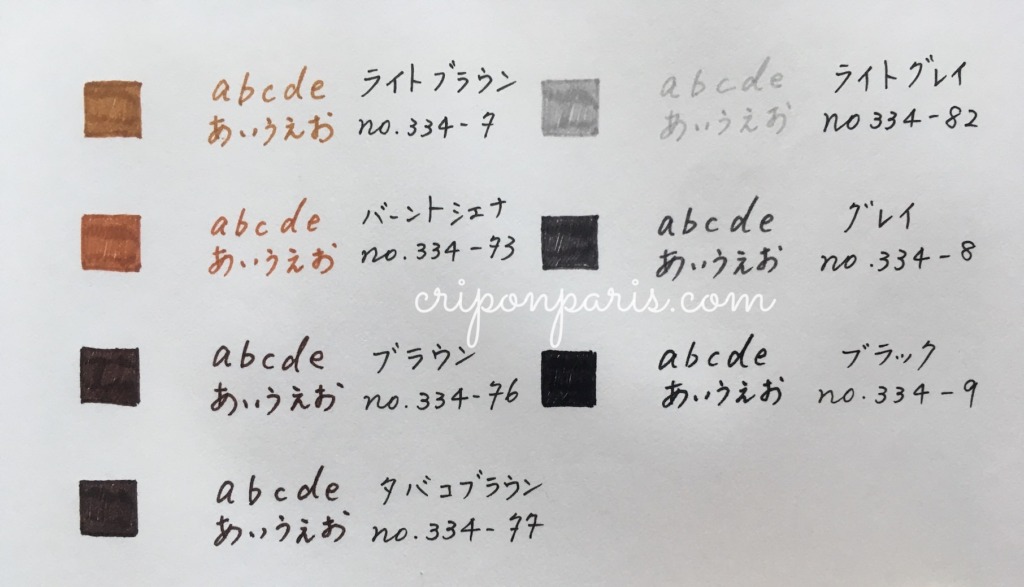 abcde ライトブラウン
あいうえお no.334-7
abcde バーントシェナ
あいうえお no.334-73
abcde ブラウン
あいうえお no.334-76
abcde タバコブラウン
あいうえお no.334-77
abcde ライトグレイ
あいうえお no 334-82
abcde グレイ
あいうえお no.334-8
abcde ブラック
あいうえお no.334-9
criponparis.com